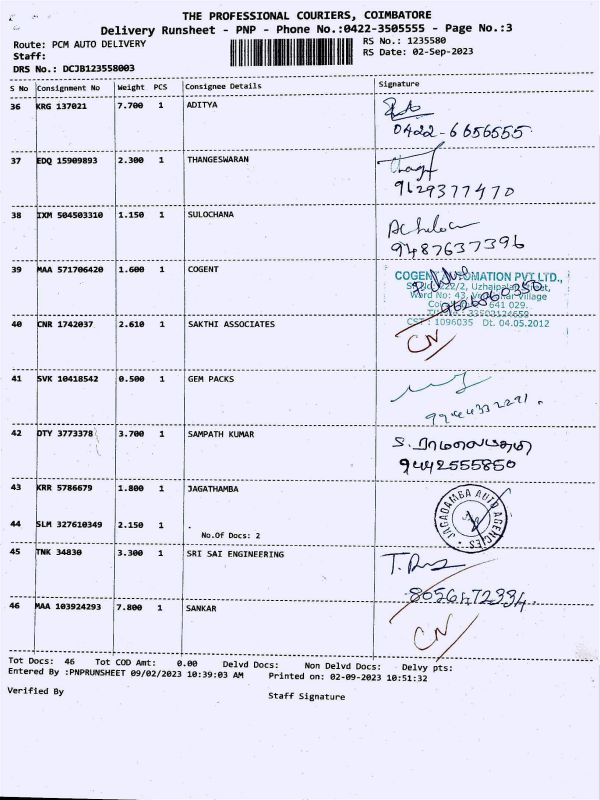 THE PROFESSIONAL COURIERS, COIMBATORE
Delivery Runsheet - PNP - Phone No.:0422-3505555 - Page No.:3
Route: PCM AUTO DELIVERY
RS No.: 1235580
Staff:
RS Date: 02-Sep-2023
DRS No.: DCJB123558003
S No Consignment No Weight PCS Consignee Details Signature
36 KRG 137021 7.700 1 ADITYA
0422-6656555
37 EDQ 15909893 2.300 1 THANGESWARAN
9629377470
38 IXM 504503310 1.150 1 SULOCHANA
9487637396
39 MAA 571706420 1.600 1 COGENT
COGENT AUTOMATION PVT LTD.,
Ward No: 43, Village
641 029.
CST : 1096035 Dt. 04.05.2012
40 CNR 1742037 2.610 1 SAKTHI ASSOCIATES
CN
41 SVK 10418542 0.500 1 GEM PACKS
42 DTY 3773378 3.700 1 SAMPATH KUMAR
9442555850
43 KRR 5786679 1.800 1 JAGATHAMBA
JAGADAMBA AUTO AGENCIES
44 SLM 327610349 2.150 1 .
No.Of Docs: 2
45 TNK 34830 3.300 1 SRI SAI ENGINEERING
8056472334.
46 MAA 103924293 7.800 1 SANKAR
CN
Tot Docs: 46 Tot COD Amt: 0.00 Delvd Docs: Non Delvd Docs: Delvy pts:
Entered By :PNPRUNSHEET 09/02/2023 10:39:03 AM Printed on: 02-09-2023 10:51:32
Verified By
Staff Signature